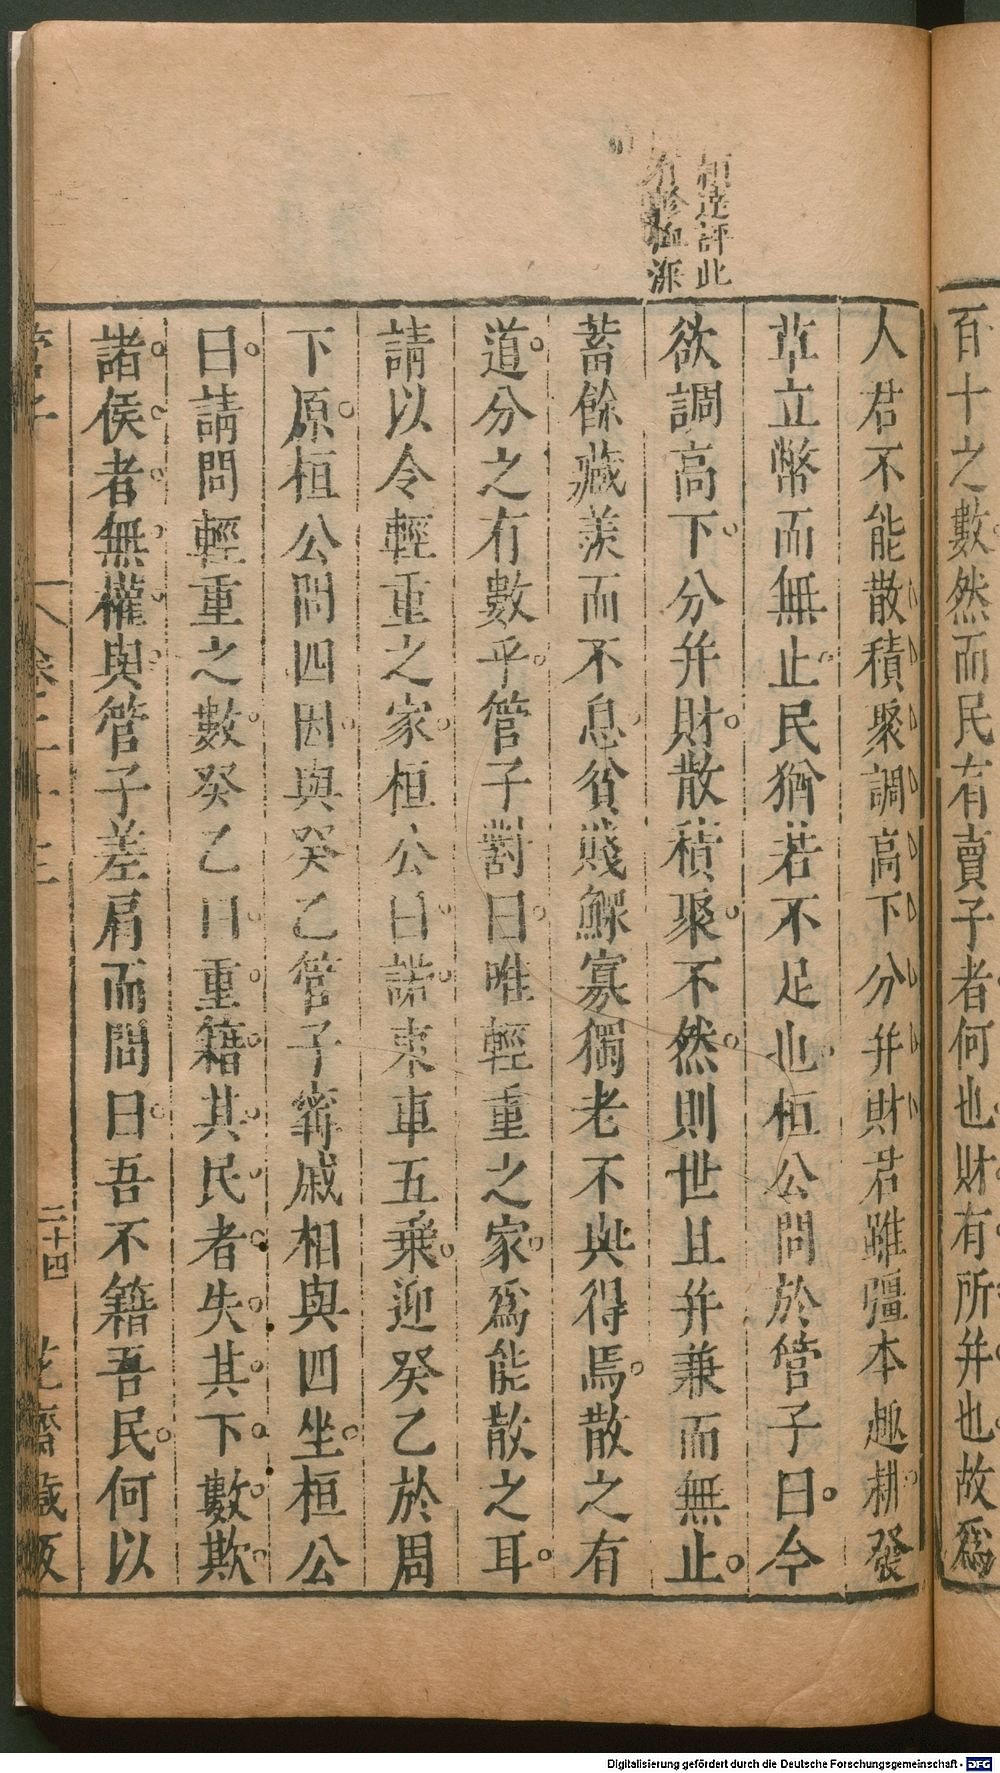 百十之數然而民有賣子者何也財有所并也故爲
人君不能散積聚調高下分并財君雖彊本趣耕發
草立幣而無止民猶若不足也桓公問於管子曰今
欲調高下分并財散積聚不然則世且并兼而無止
蓄餘藏羨而不息貧賤鰥寡獨老不與得焉散之有
道分之有數乎管子對曰唯輕重之家爲能散之耳
請以令輕重之家桓公曰諾東車五乘迎癸乙於周
下原桓公問四因與癸乙管子甯戚相與四坐桓公
曰請問輕重之數癸乙曰重籍其民者失其下數欺
諸侯者無權與管子差肩而問曰吾不籍吾民何以
管子
二十四
花齋藏板
評此
Digitalisierung gefördert durch die Deutsche Forschungsgemeinschaft - DFG